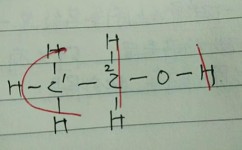 H H
H - C¹ - C² - O - H
H H